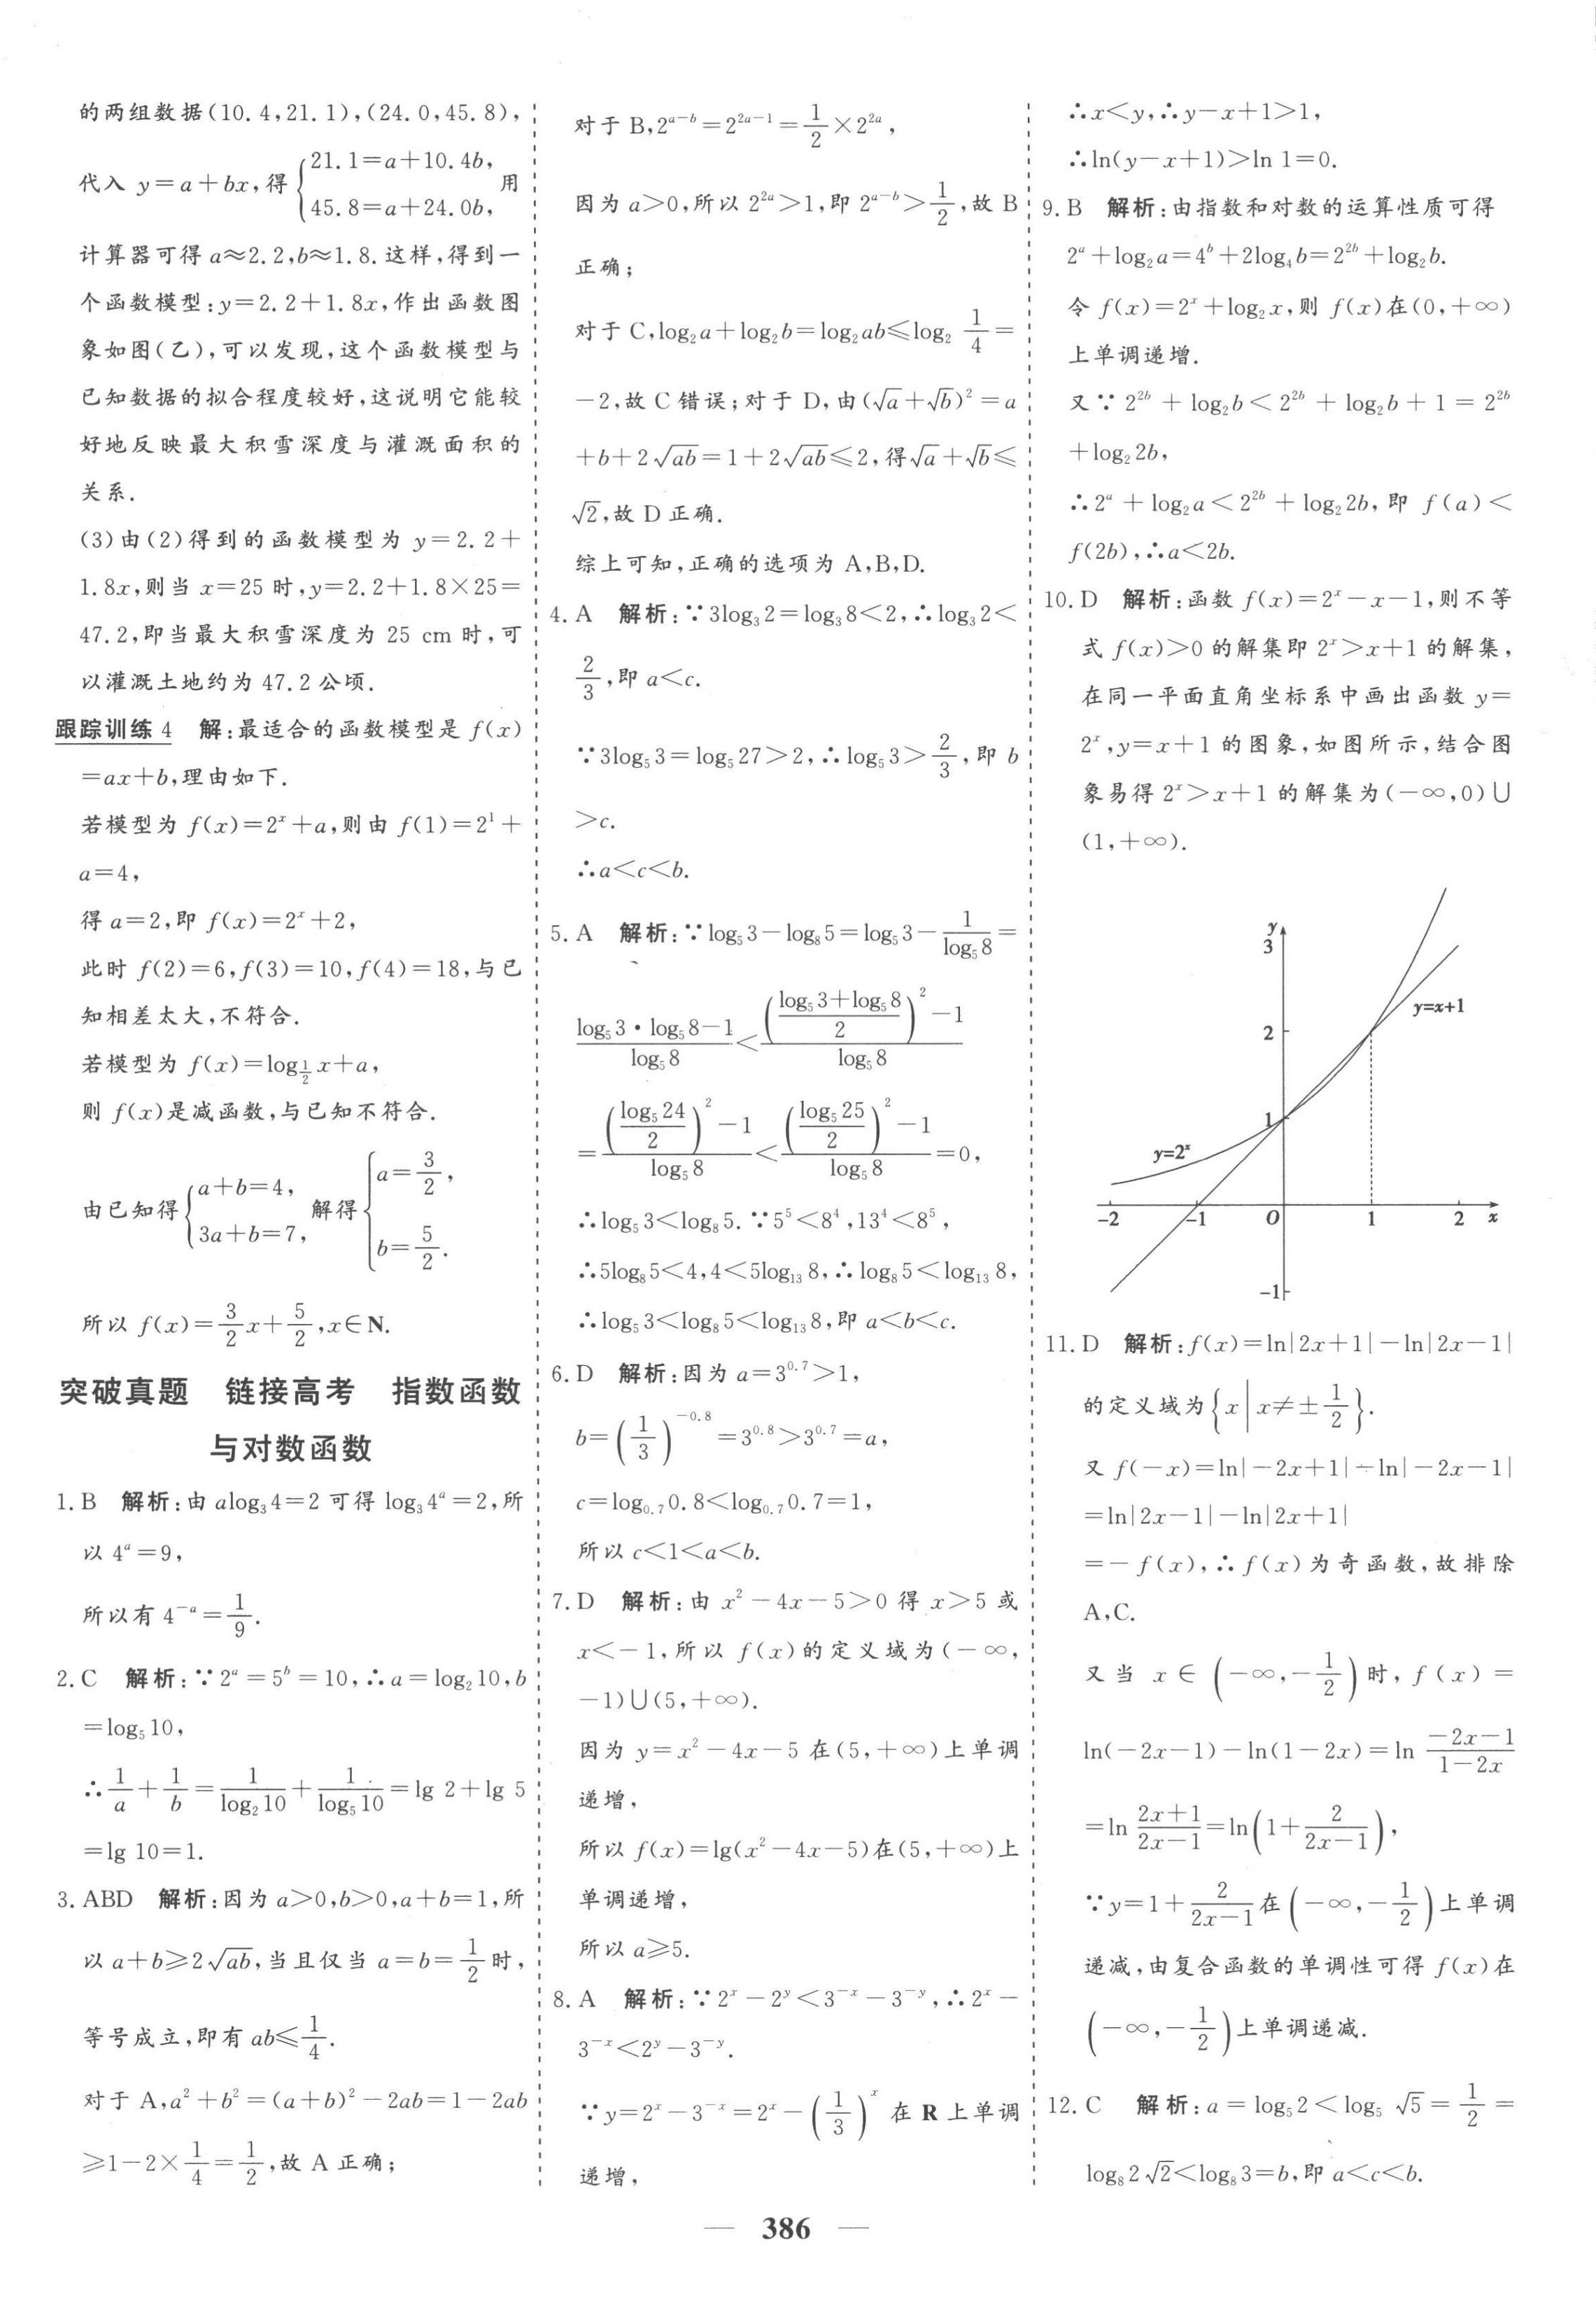 的两组数据(10.4,21.1),(24.0,45.8),
代入 y=a+bx,得{21.1=a+10.4b, 45.8=a+24.0b, 用
计算器可得 a≈2.2,b≈1.8.这样,得到一
个函数模型:y=2.2+1.8x,作出函数图
象如图(乙),可以发现,这个函数模型与
已知数据的拟合程度较好,这说明它能较
好地反映最大积雪深度与灌溉面积的
关系.
(3)由(2)得到的函数模型为 y=2.2+
1.8x,则当 x=25 时,y=2.2+1.8×25=
47.2,即当最大积雪深度为 25 cm 时,可
以灌溉土地约为 47.2 公顷.
跟踪训练 4 解:最适合的函数模型是 f(x)
=ax+b,理由如下.
若模型为 f(x)=2^x+a,则由 f(1)=2^1+
a=4,
得 a=2,即 f(x)=2^x+2,
此时 f(2)=6,f(3)=10,f(4)=18,与已
知相差太大,不符合.
若模型为 f(x)=log_{1/2} x+a,
则 f(x)是减函数,与已知不符合.
由已知得{a+b=4, 3a+b=7, 解得{a=3/2, b=5/2.
所以 f(x)=3/2 x+5/2,x∈N.
突破真题 链接高考 指数函数
与对数函数
1.B 解析:由 alog_3 4=2 可得 log_3 4^a=2,所
以 4^a=9,
所以有 4^{-a}=1/9.
2.C 解析:∵2^a=5^b=10,∴a=log_2 10,b
=log_5 10,
∴1/a+1/b=1/(log_2 10)+1/(log_5 10)=lg 2+lg 5
=lg 10=1.
3.ABD 解析:因为 a>0,b>0,a+b=1,所
以 a+b≥2√(ab),当且仅当 a=b=1/2时,
等号成立,即有 ab≤1/4.
对于 A,a²+b²=(a+b)²-2ab=1-2ab
≥1-2×1/4=1/2,故 A 正确;
对于 B,2^{a-b}=2^{2a-1}=1/2×2^{2a},
因为 a>0,所以 2^{2a}>1,即 2^{a-b}>1/2,故 B
正确;
对于 C,log_2 a+log_2 b=log_2 ab≤log_2 1/4=
-2,故 C 错误;对于 D,由(√a+√b)²=a
+b+2√(ab)=1+2√(ab)≤2,得√a+√b≤
√2,故 D 正确.
综上可知,正确的选项为 A,B,D.
4.A 解析:∵3log_3 2=log_3 8<2,∴log_3 2<
2/3,即 a<c.
∵3log_5 3=log_5 27>2,∴log_5 3>2/3,即 b
>c.
∴a<c<b.
5.A 解析:∵log_5 3-log_8 5=log_5 3-1/(log_5 8)=
(log_5 3·log_5 8-1)/(log_5 8)<(((log_5 3+log_5 8)/2)²-1)/(log_5 8)
=(((log_5 24)/2)²-1)/(log_5 8)<(((log_5 25)/2)²-1)/(log_5 8)=0,
∴log_5 3<log_8 5.∵5^5<8^4,13^4<8^5,
∴5log_8 5<4,4<5log_13 8,∴log_8 5<log_13 8,
∴log_5 3<log_8 5<log_13 8,即 a<b<c.
6.D 解析:因为 a=3^{0.7}>1,
b=(1/3)^{-0.8}=3^{0.8}>3^{0.7}=a,
c=log_{0.7} 0.8<log_{0.7} 0.7=1,
所以 c<1<a<b.
7.D 解析:由 x²-4x-5>0 得 x>5 或
x<-1,所以 f(x)的定义域为(-∞,
-1)∪(5,+∞).
因为 y=x²-4x-5 在(5,+∞)上单调
递增,
所以 f(x)=lg(x²-4x-5)在(5,+∞)上
单调递增,
所以 a≥5.
8.A 解析:∵2^x-2^y<3^{-x}-3^{-y},∴2^x-
3^{-x}<2^y-3^{-y}.
∵y=2^x-3^{-x}=2^x-(1/3)^x 在 R 上单调
递增,
∴x<y,∴y-x+1>1,
∴ln(y-x+1)>ln 1=0.
9.B 解析:由指数和对数的运算性质可得
2^a+log_2 a=4^b+2log_4 b=2^{2b}+log_2 b.
令 f(x)=2^x+log_2 x,则 f(x)在(0,+∞)
上单调递增.
又∵2^{2b}+log_2 b<2^{2b}+log_2 b+1=2^{2b}
+log_2 2b,
∴2^a+log_2 a<2^{2b}+log_2 2b,即 f(a)<
f(2b),∴a<2b.
10.D 解析:函数 f(x)=2^x-x-1,则不等
式 f(x)>0 的解集即 2^x>x+1 的解集,
在同一平面直角坐标系中画出函数 y=
2^x,y=x+1 的图象,如图所示,结合图
象易得 2^x>x+1 的解集为(-∞,0)∪
(1,+∞).
y
3
y=x+1
2
1
y=2^x
-2 -1 O 1 2 x
-1
11.D 解析:f(x)=ln|2x+1|-ln|2x-1|
的定义域为{x|x≠±1/2}.
又 f(-x)=ln|-2x+1|-ln|-2x-1|
=ln|2x-1|-ln|2x+1|
=-f(x),∴f(x)为奇函数,故排除
A,C.
又当 x∈(-∞,-1/2)时,f(x)=
ln(-2x-1)-ln(1-2x)=ln (-2x-1)/(1-2x)
=ln (2x+1)/(2x-1)=ln(1+2/(2x-1)),
∵y=1+2/(2x-1)在(-∞,-1/2)上单调
递减,由复合函数的单调性可得 f(x)在
(-∞,-1/2)上单调递减.
12.C 解析:a=log_5 2<log_5 √5=1/2=
log_8 2√2<log_8 3=b,即 a<c<b.
— 386 —